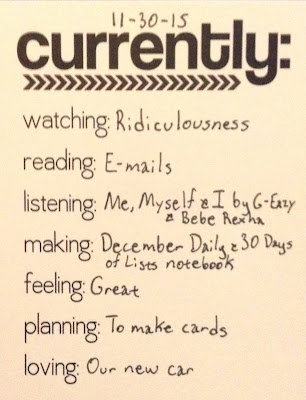 11-30-15
currently:
watching: Ridiculousness
reading: E-mails
listening: Me, Myself & I by G-Eazy
& Bebe Rexha
making: December Daily & 30 Days
of Lists notebook
feeling: Great
planning: To make cards
loving: Our new car